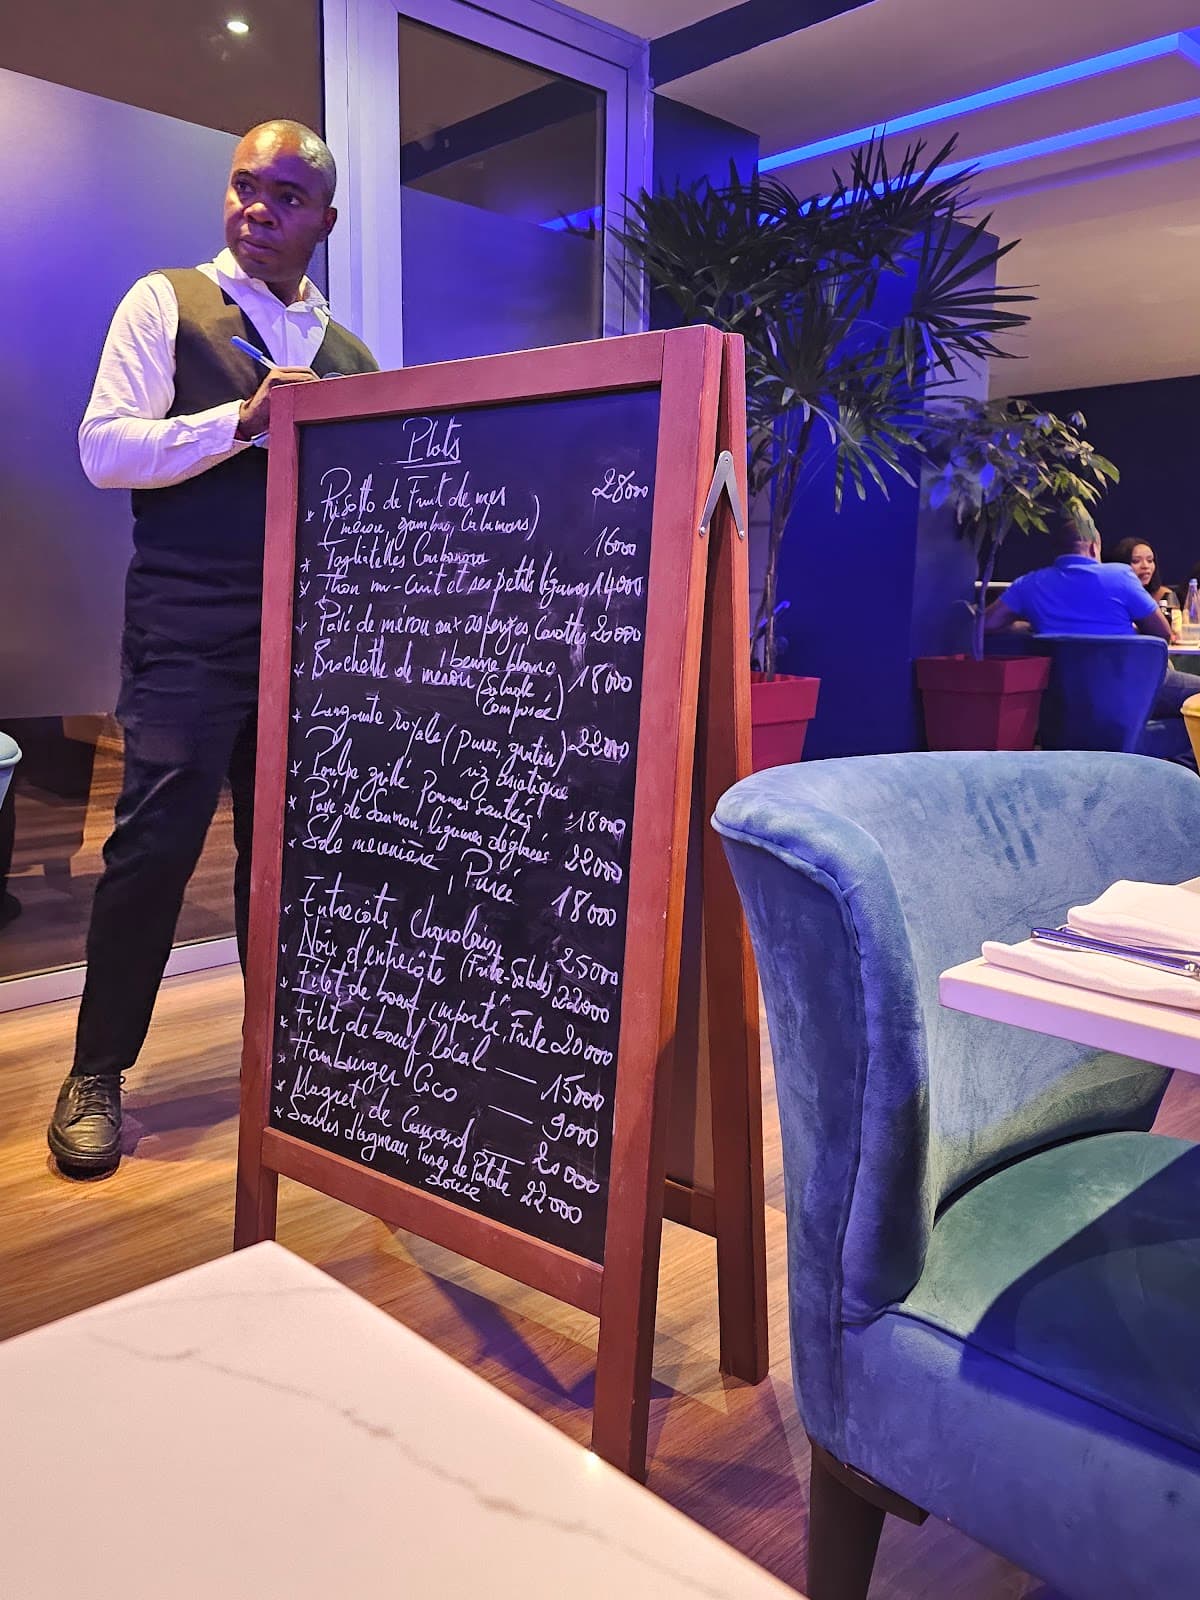 Plats
* Risotto de Fruit de mer 28000
(mérou, gambas, Calamars)
* Tagliatelles Carbonara 16000
* Thon mi-cuit et ses petits légumes 14000
* Pavé de mérou aux asperges, Carottes 20000
beurre blanc
* Brochette de mérou (Salade 18000
Composée)
* Langouste royale (purée, gratin) 22000
riz asiatique
* Poulpe grillé. Pommes Sautées 18000
* Pavé de Saumon, légumes déglacés 22000
* Sole meunière, Purée 18000
* Entrecôte Charolaise 25000
* Noix d'entrecôte (Frite-Salade) 22000
* Filet de boeuf importé, Frite 20000
* Filet de boeuf local — 15000
* Hamburger Coco — 9000
* Magret de Canard — 20000
* Souris d'agneau, Purée de Patate 22000
douce